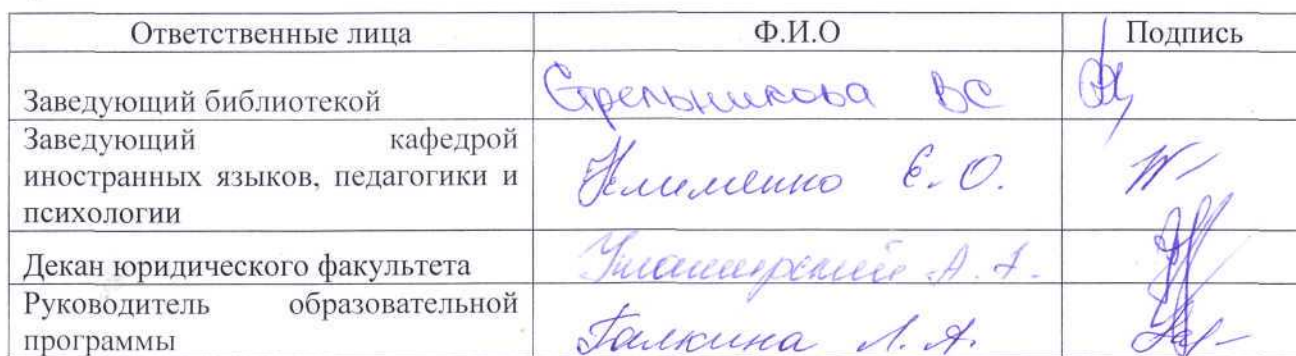 Ответственные лица Ф.И.О Подпись
Заведующий библиотекой Стрельникова ВС
Заведующий кафедрой
иностранных языков, педагогики и Клименко Е.О.
психологии
Декан юридического факультета А.
Руководитель образовательной
программы Галкина Л.А.